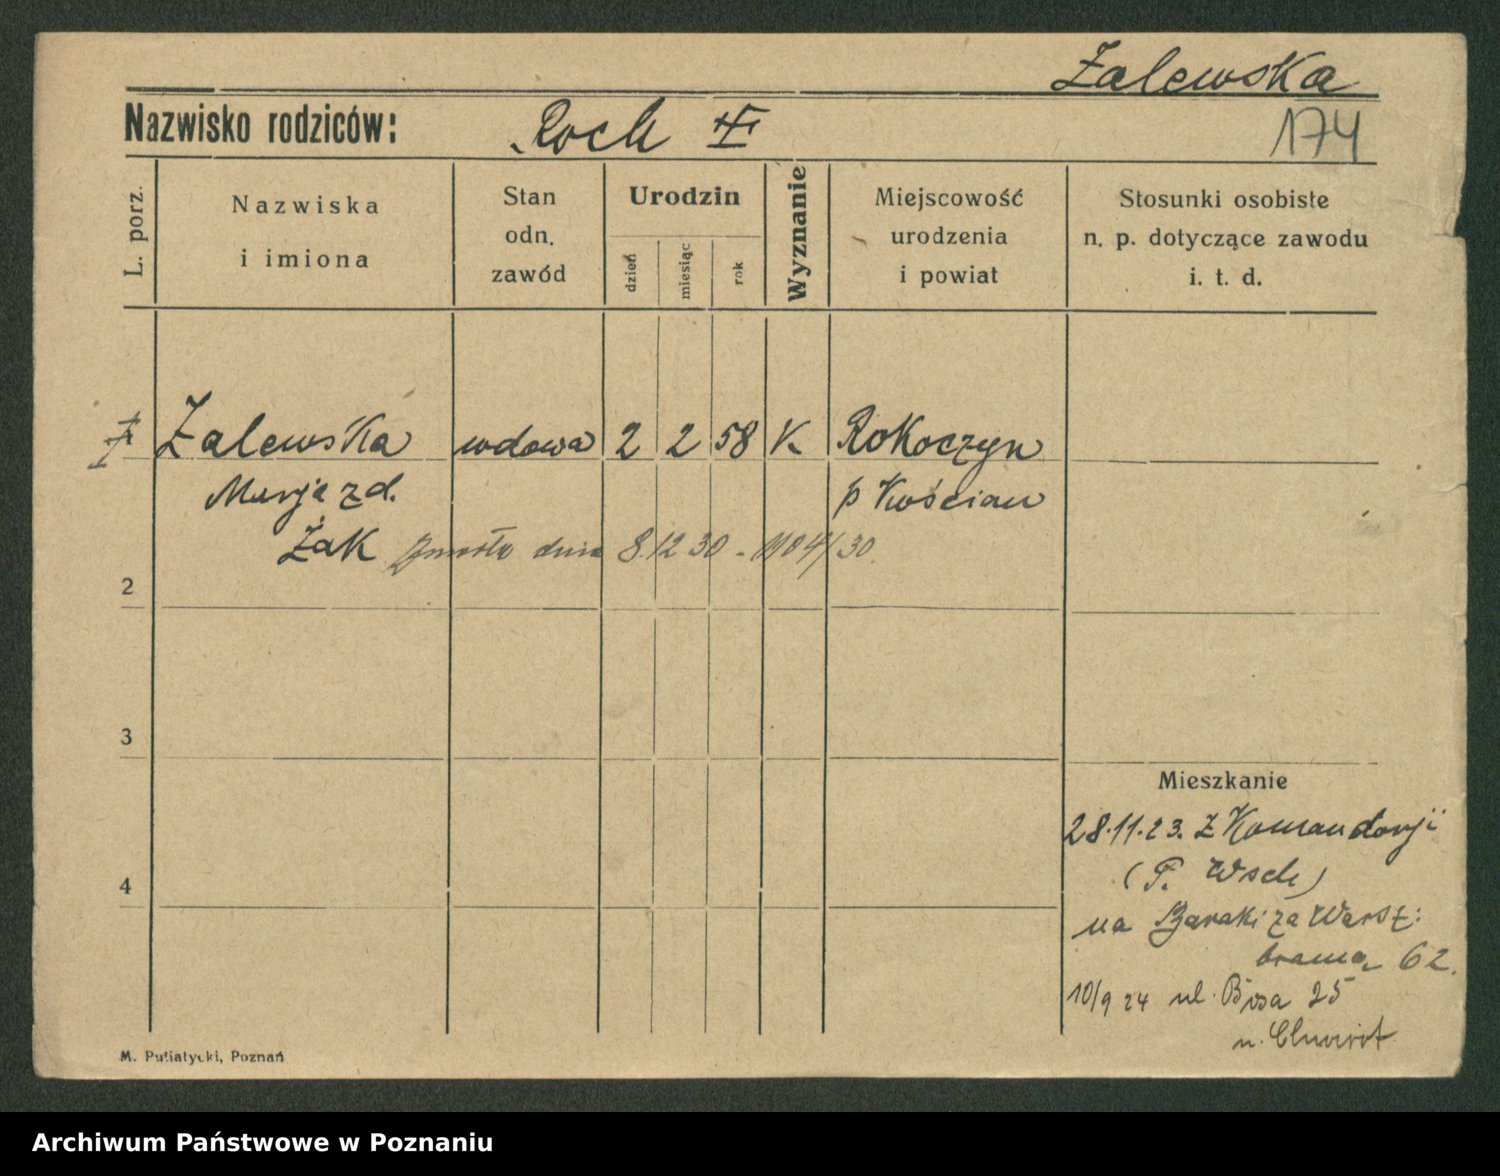 Zalewska
Nazwisko rodziców: Roch
174
L. porz.
Nazwiska
i imiona
Stan
odn.
zawód
Urodzin
dzień
miesiąc
rok
Wyznanie
Miejscowość
urodzenia
i powiat
Stosunki osobiste
n. p. dotyczące zawodu
i. t. d.
Zalewska wdowa 2 2 58 K Rokoczyn
Marja zd. p Kościan
Żak Zmarła dnia 8.12 30 - 1904/30.
2
3
4
Mieszkanie
28.11.23. z Komandorji
(F. Wsch)
na Baraki za Warsz:
bramą 62.
10/9 24 ul. Bosa 25
M. Putiatycki, Poznań
Archiwum Państwowe w Poznaniu